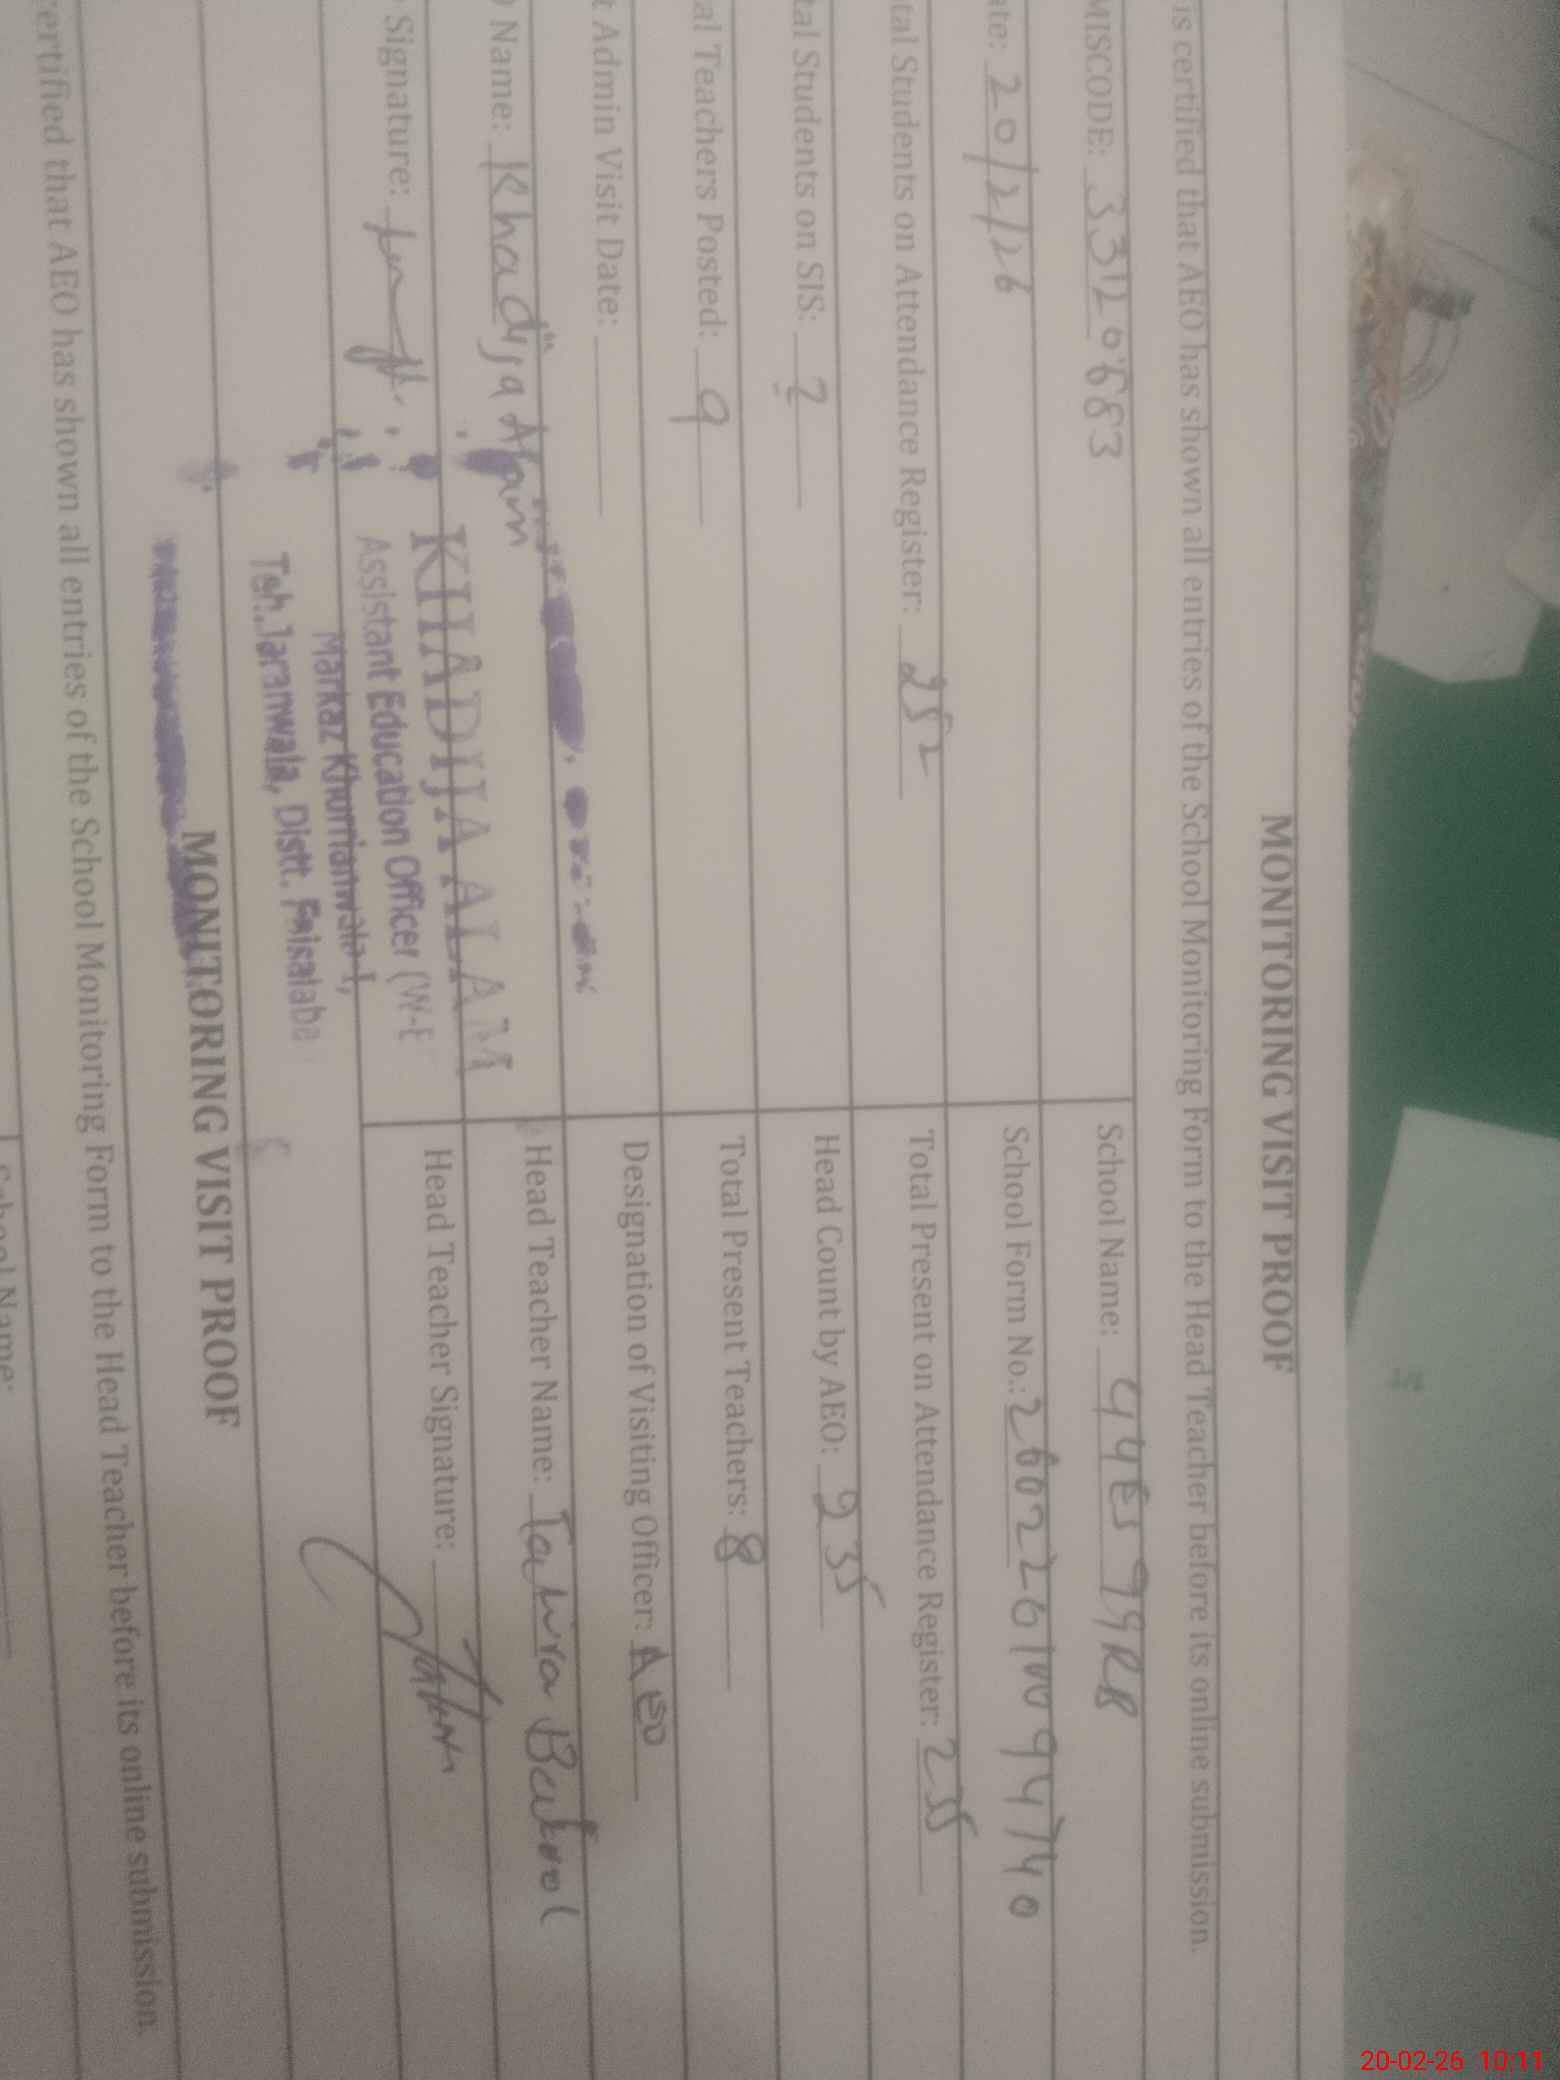 MONITORING VISIT PROOF
is certified that AEO has shown all entries of the School Monitoring Form to the Head Teacher before its online submission.
MISCODE: 33120683 School Name: GGES 99RB
ate: 20/2/26 School Form No.: 26022610094740
tal Students on Attendance Register: 252 Total Present on Attendance Register: 235
tal Students on SIS: Head Count by AEO: 235
al Teachers Posted: 9 Total Present Teachers: 8
t Admin Visit Date: Designation of Visiting Officer: AEO
Name: Khadija Alam Head Teacher Name: Tahira Batool
Signature: Head Teacher Signature:
KHADIJA ALAM
Assistant Education Officer (W-E
Markaz Khurrianwala-I,
Teh. Jaranwala, Distt. Faisalaba
MONITORING VISIT PROOF
ertified that AEO has shown all entries of the School Monitoring Form to the Head Teacher before its online submission.
School Name:
20-02-26 10:11